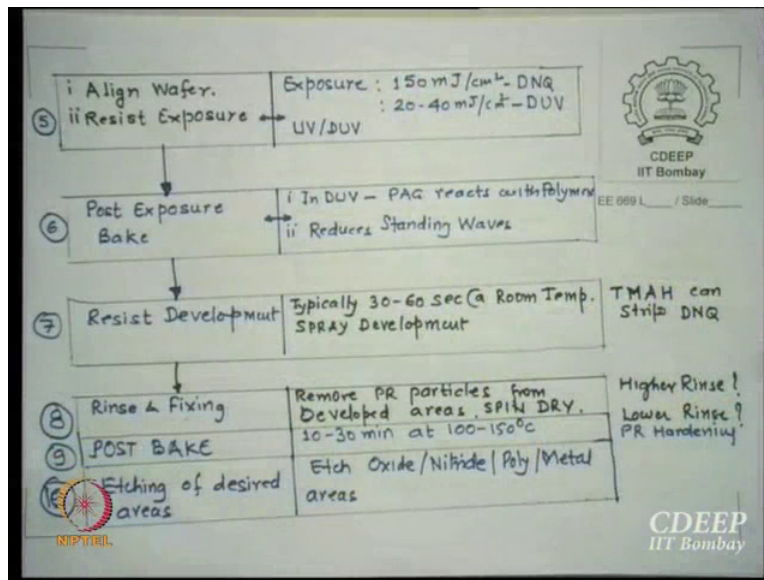 i Align Wafer.
ii Resist Exposure
Exposure : 150 mJ/cm² - DNQ
: 20-40 mJ/cm² - DUV
UV/DUV
5
CDEEP
IIT Bombay
EE 669 L____ / Slide____
6
Post Exposure
Bake
i In DUV - PAG reacts with Polymer
ii Reduces Standing Waves
7
Resist Development
Typically 30-60 sec @ Room Temp.
SPRAY Development
TMAH can
Strip DNQ
8
Rinse & Fixing
Remove PR particles from
Developed areas. SPIN DRY.
Higher Rinse?
Lower Rinse?
PR Hardening
9
POST BAKE
10-30 min at 100-150°C
10
Etching of desired
areas
Etch Oxide/Nitride/Poly/Metal
areas
NPTEL
CDEEP
IIT Bombay